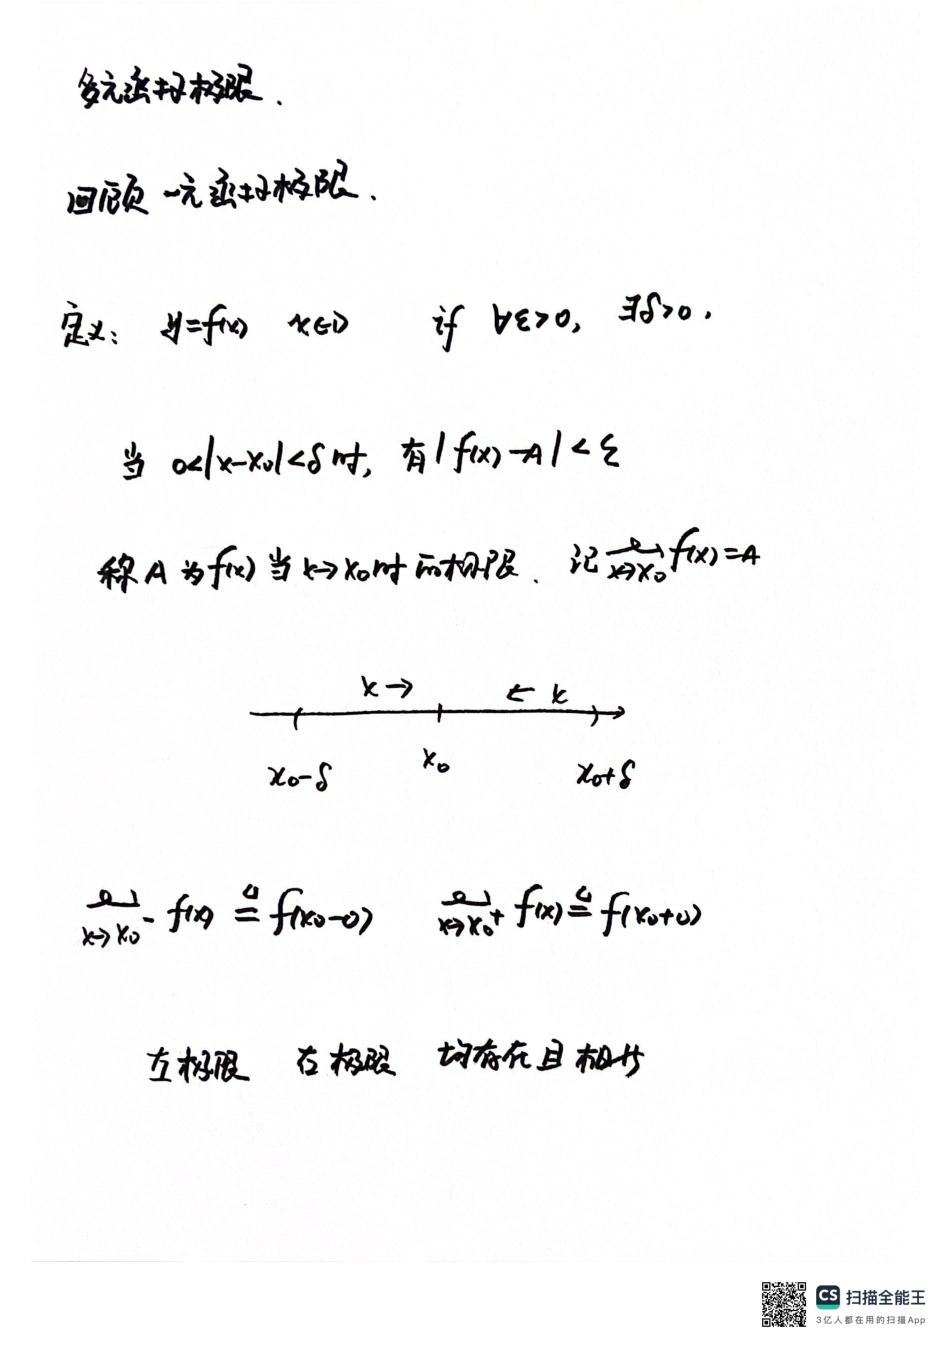 多元函数极限.
回顾 一元函数极限.
定义: y=f(x) x∈D if ∀ε>0, ∃δ>0.
当 0<|x-x₀|<δ时, 有|f(x)-A|<ε
称 A 为 f(x) 当 x→x₀时 的极限. 记 lim x→x₀ f(x)=A
x→ ←x
x₀-δ x₀ x₀+δ
lim x→x₀⁻ f(x) ≜ f(x₀-0) lim x→x₀⁺ f(x) ≜ f(x₀+0)
左极限 右极限 均存在且相等
CS 扫描全能王
3亿人都在用的扫描App